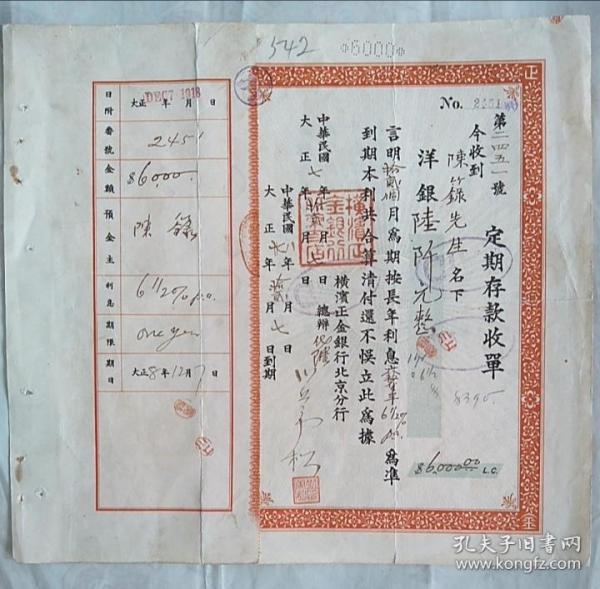 542
6000
No. 2451
定期存款收單
第二四五一號
今收到
陳籙先生 名下
洋銀陸阡元整
言明拾貳個月爲期按長年利息 6 1/2% p.a. 爲準
到期本利共合算清付還不悞立此爲據
橫濱正金銀行北京分行
總辦
中華民國七年拾貳月七日
大正
中華民國八年拾貳月七日到期
大正
$6,000.00 L.C.
8390
日附 大正 年 月 日
DEC 7 1918
番號 2451
金額 $6000.00
預金主 陳籙
利息 6 1/2% p.a.
期限 one year
期日 大正8年12月7日
孔夫子旧书网
www.kongfz.com